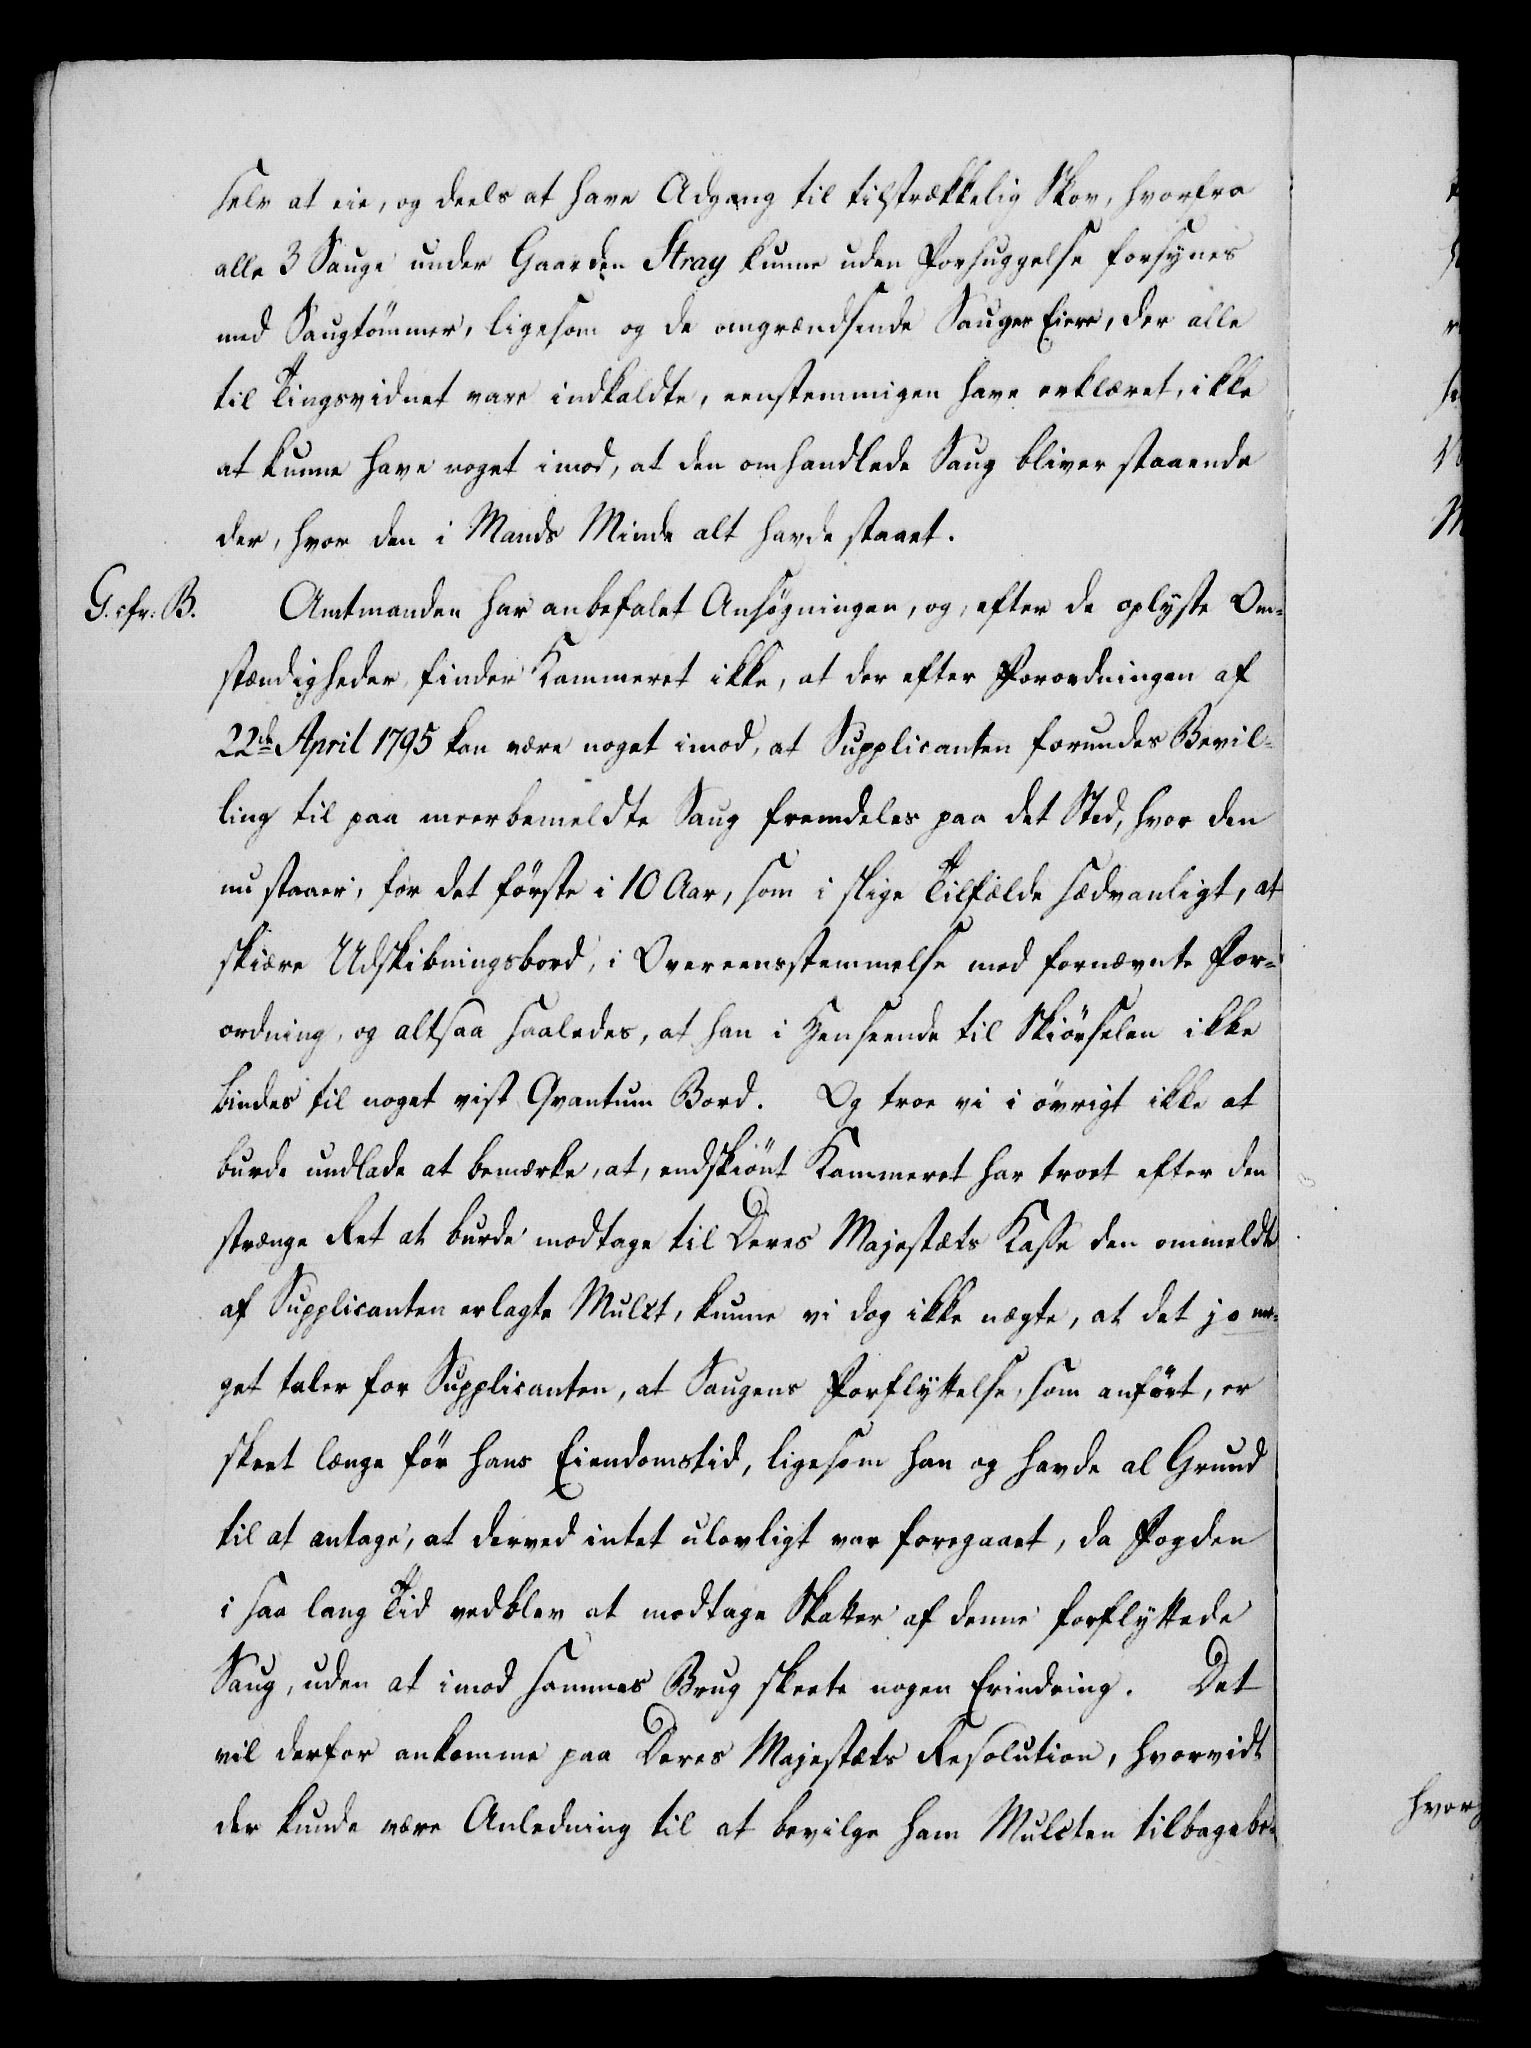 selv at eie, og deels at have Adgang til tilstrækkelig Skov, hvorfra
alle 3 Sauge under Gaarden Stray kunne uden Forhuggelse forsynes
med Saugtömmer, ligesom og de omgrændsende Sauger Eiere, der alle
til Tingsvidnet vare indkaldte, eenstemmigen have erklæret, ikke
at kunne have noget imod, at den omhandlede Saug bliver staaende
der, hvor den i Mands Minde alt havde staaet.
G. cfr: B. Amtmanden har anbefalet Ansøgningen, og, efter de oplyste Om-
stændigheder finder Kammeret ikke, at der efter Forordningen af
22de April 1795 kan være noget imod, at Supplicanten forundes Bevil-
ling til paa meerbemeldte Saug fremdeles paa det Sted, hvor den
nu staaer, for det förste i 10 Aar, som i slige Tilfælde sædvanligt, at
skiære Udskibningsbord, i Overeensstemmelse med fornævnte For-
ordning, og altsaa saaledes, at han i Henseende til Skiörselen ikke
bindes til noget vist Qvantum Bord. Og troe vi i övrigt ikke at
burde undlade at bemærke, at, endskiönt Kammeret har troet efter den
strænge Ret at burde modtage til Deres Majestæts Kasse den ommeldte
af Supplicanten erlagte Mulct, kunne vi dog ikke nægte, at det jo me-
get taler for Supplicanten, at Saugens Forflyttelse, som anfört, er
skeet længe för hans Eiendomstid, ligesom han og havde al Grund
til at antage, at derved intet ulovligt var foregaaet, da Fogden
i saa lang Tid vedblev at modtage Skatter af denne forflyttede
Saug, uden at imod sammes Brug skeete nogen Erindring. Det
vil derfor ankomme paa Deres Majestæts Resolution, hvorvidt
der kunde være Anledning til at bevilge ham Mulcten tilbagebe-